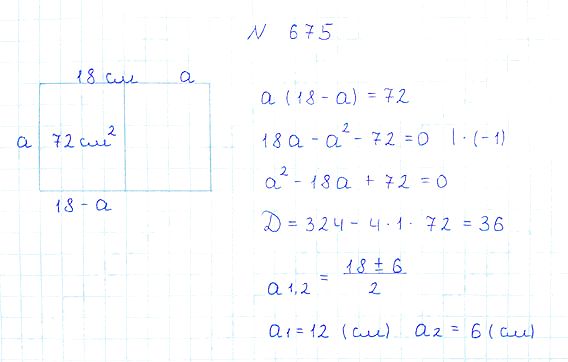 N 675
18 см a
a 72 см²
18 - a
a (18 - a) = 72
18a - a² - 72 = 0 | · (-1)
a² - 18a + 72 = 0
D = 324 - 4 · 1 · 72 = 36
a₁,₂ = (18 ± 6) / 2
a₁ = 12 (см) a₂ = 6 (см)